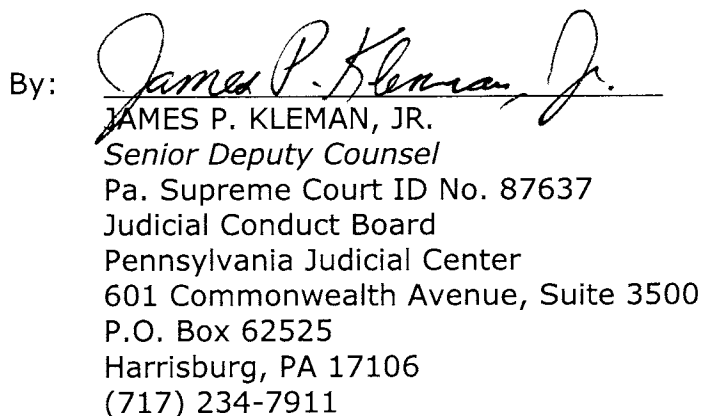 By: James P. Kleman, Jr.
JAMES P. KLEMAN, JR.
Senior Deputy Counsel
Pa. Supreme Court ID No. 87637
Judicial Conduct Board
Pennsylvania Judicial Center
601 Commonwealth Avenue, Suite 3500
P.O. Box 62525
Harrisburg, PA 17106
(717) 234-7911